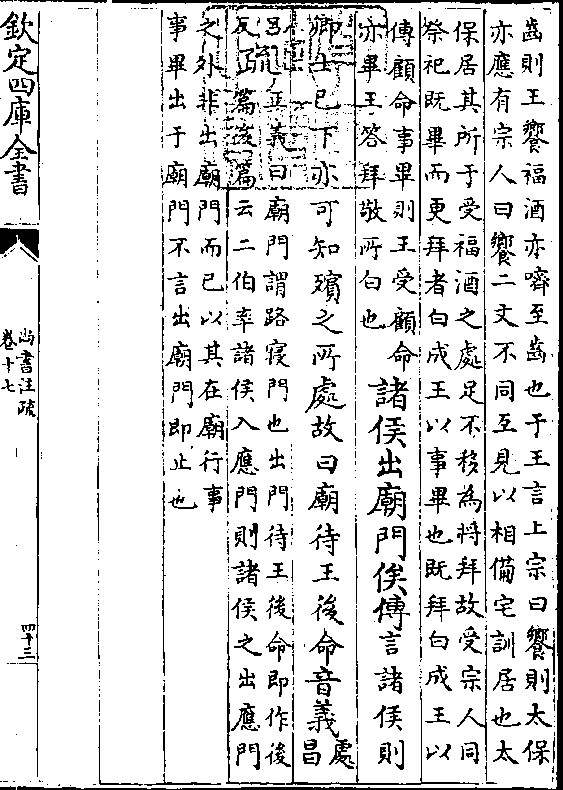 齒則王饗福酒亦嚌至齒也于王言上宗曰饗則太保
亦應有宗人曰饗二文不同互見以相備宅訓居也太
保居其所于受福酒之處足不移為將拜故受宗人同
祭祀既畢而更拜者白成王以事畢也既拜白成王以
傳顧命事畢則王受顧命
亦畢王答拜敬所白也
諸侯出廟門俟傳言諸侯則
卿士已下亦可知殯之所處故曰廟待王後命音義處昌
呂反疏正義曰廟門謂路寢門也出門待王後命即作後
篇後篇云二伯率諸侯入應門則諸侯之出應門
之外非出廟門而已以其在廟行事
事畢出于廟門不言出廟門即止也
欽定四庫全書
尚書注疏
卷十七
四十三